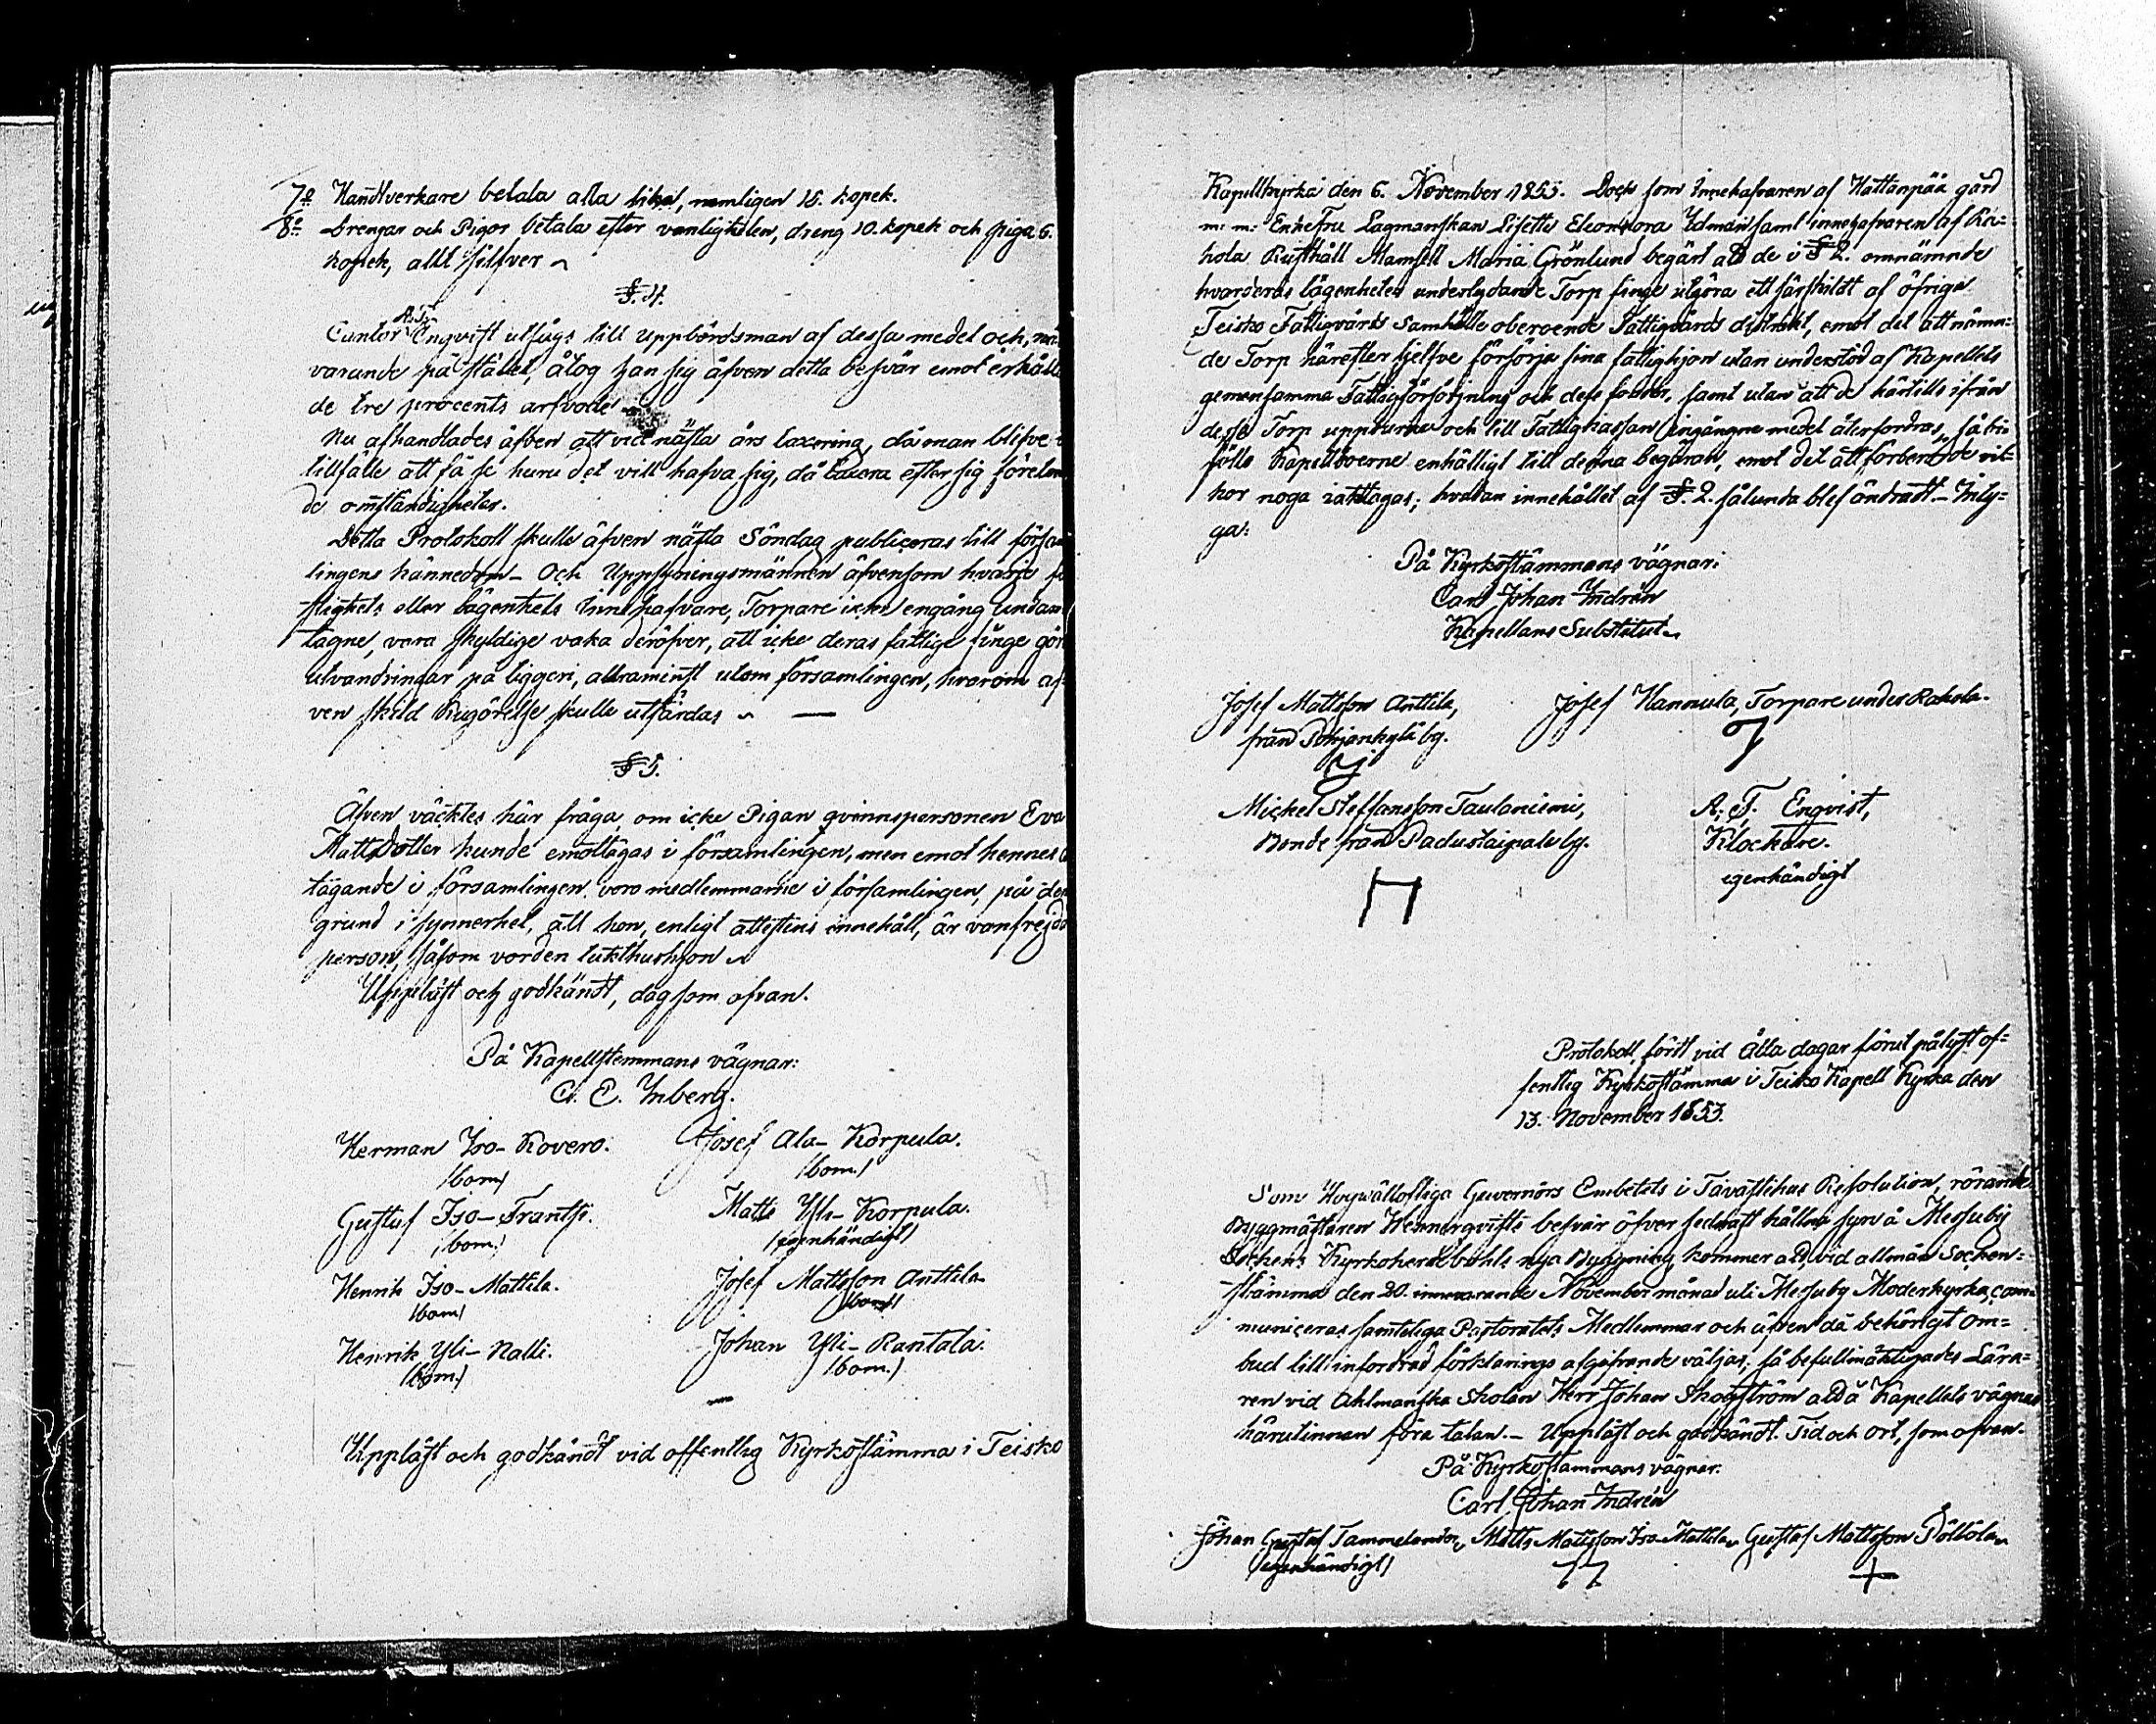 7º Handtverkare betala alla lika, nemligen 15. kopek.
8º Drengar och Pigor betala efter vanligheten, dreng 10. kopek och piga 6.
kopek, allt silfver
§. 4.
A. F.
Cantor Enqvist utsågs till Uppbördsman af dessa medel och, när
varande på stället, åtog han sig äfven detta besvär emot erhålla
de tre procents arfvode
Nu afhandlades äfven att vid nästa års taxering, då man blifve i
tillfälle att få se huru det vill hafva sig, då taxera efter sig företeen
de omständigheter.
Detta Protokoll skulle äfven nästa Söndag publiceras till försam
lingens kännedom – Och Uppsyningsmännen äfvensom hvarje
stighets eller lägenhets Innehafvare, Torpare icke engång undan
tagne, vara skyldige vaka deröfver, att icke deras fattige finge göra
utvandringar på tiggeri, allraminst utom församlingen, hvarom äf
ven skild Kugörelse skulle utfärdas
§ 5.
Äfven väcktes här fråga om icke Pigan qvinnspersonen Eva
Mattsdotter kunde emottagas i församlingen, men emot hennes
tagande i församlingen voro medlemmarne i församlingen, på den
grund i synnerhet, att hon, enligt attestens innehåll, är vanfrejda
person, såsom vorden tukthushjon
Uppläst och godkändt, dag som ofvan.
På Kapellstemmans vägnar:
C. E. Inberg.
Herman Iso-Kovero. Josef Ala-Korpula.
(bom.) (bom.)
Gustaf Iso-Frantsi. Matts Yli-Korpula.
(bom.) (egenhändigt)
Henrik Iso-Mattila. Josef Mattsson Anttila
(bom) (bom)
Henrik Yli-Nalli. Johan Yli-Rantala.
(bom.) (bom.)
Uppläst och godkändt vid offentlig Kyrkostämma i Teisko
Kapellkyrka den 6. November 1853. Dock som Innehafvaren af Hattanpää gård
m: m: EnkeFru Lagmanskan Lisette Eleonora Idman samt innehafvaren af Ra-
kola Rusthåll Mamsell Maria Grönlund begärt att de i § 2. omnämnde
hvarderas lägenheter underlydande Torp finge utgöra ett särskildt af öfriga
Teisko Fattigvårds Samhälle oberoende Fattigvårds distrikt, emot det att nämn=
de Torp härefter sjelfve försörja sina fattighjon utan understöd af Kapellets
gemensamma Fattigförsörjning och dess fonder, samt utan att de härtills ifrån
desse Torp uppburne och till Fattigkassan ingångne medel återfordras, så bi=
föllo Kapelloerne enhälligt till denna begäran, emot det att förberörde vil=
kor noga iakttagas; hvadan innehållet af §. 2. sålunda blef ändradt. – Inty=
ga:
På Kyrkostämmans vägnar:
Carl Johan Indrén
Kapellans Substitut
Josef Mattsson Anttila, Josef Hannula, Torpare under Rakola.
från Pohjankylä by.
Mickel Steffansson Taulaniemi, A. F. Enqvist,
Bonde från Padustaipale by. Klockare.
egenhändigt
Protokoll, fördt vid Åtta dagar förut pålyst of=
fentlig Kyrkostämma i Teisko Kapell Kyrka den
13. November 1853.
Som Högvällofliga Guvernörs Embetets i Tavastehus Resolution, rörande
Byggmästaren Wennerqvists besvär öfver sednast hållna syn å Messuby
Sockens Kyrkoherdebohls nya Byggning kommer att, vid allmän Socken=
stämma den 20. innevarande November månad uti Messuby Moderkyrka, com=
municeras samteliga Pastoratets Medlemmar och äfven då behörigt om=
bud till infordrad förklarings afgifvande väljas; så befullmäktigades Lära=
ren vid Ahlmanska Skolan Herr Johan Skogström att å Kapellets vägnar
härutinnan föra talan. – Uppläst och godkändt. Tid och ort, som ofvan.
På Kyrkostämmans vägnar:
Carl Johan Indrén
Johan Gustaf Tammelander, Matts Mattsson Iso-Mattila, Gustaf Mattsson Pöllölä
(egenhändigt)